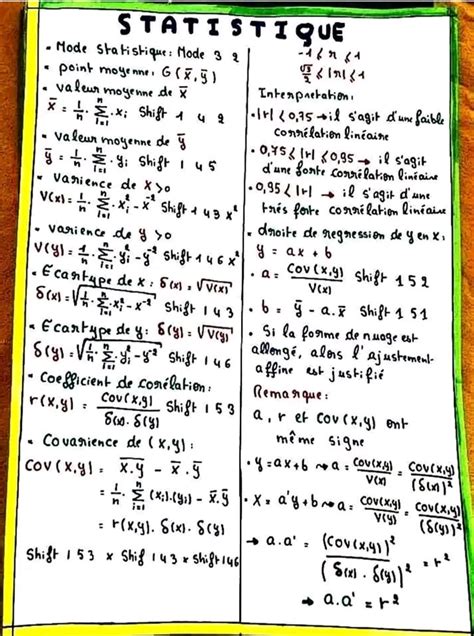 STATISTIQUE
• Mode statistique: Mode 3 2
• point moyenne: G(x̄, ȳ)
• valeur moyenne de x̄
x̄ = 1/n · Σ(i=1→n) · xᵢ Shift 1 4 2
• valeur moyenne de ȳ
ȳ = 1/n · Σ(i=1→n) · yᵢ Shift 1 4 5
• varience de x > 0
V(x) = 1/n · Σ(i=1→n) · xᵢ² - x̄² Shift 1 4 3 x²
• varience de y > 0
V(y) = 1/n · Σ(i=1→n) · yᵢ² - ȳ² Shift 1 4 6 x²
• Ecartype de x: δ(x) = √V(x)
δ(x) = √(1/n · Σ(i=1→n) · xᵢ² - x̄²) Shift 1 4 3
• Ecartype de y: δ(y) = √V(y)
δ(y) = √(1/n · Σ(i=1→n) · yᵢ² - ȳ²) Shift 1 4 6
• Coefficient de corélation:
r(x,y) = Cov(x,y) / δ(x) · δ(y) Shift 1 5 3
• Covarience de (x,y):
Cov(x,y) = x̄.ȳ - x̄ . ȳ
= 1/n · Σ(i=1→n) (xᵢ).(yᵢ) - x̄.ȳ
= r(x,y) . δ(x) . δ(y)
Shift 1 5 3 x Shif 1 4 3 x Shift 1 4 6
-1 ≤ r ≤ 1
√3/2 ≤ |r| ≤ 1
Interpretation:
• |r| < 0,75 → il s'agit d'une faible
corrélation linéaire
• 0,75 ≤ |r| ≤ 0,95 → il s'agit
d'une forte corrélation linéaire
• 0,95 ≤ |r| → il s'agit d'une
trés forte corrélation linéaire
• droite de regression de y en x:
y = ax + b
• a = Cov(x,y) / V(x) Shift 1 5 2
• b = ȳ - a.x̄ Shift 1 5 1
• Si la forme de nuage est
allongé, alors l'Ajustement
affine est justifié
Remarque:
a, r et Cov(x,y) ont
même signe
• y = ax+b ⇝ a = Cov(x,y) / V(x) = Cov(x,y) / (δ(x))²
• x = a'y+b ⇝ a = Cov(x,y) / V(y) = Cov(x,y) / (δ(y))²
→ a.a' = (Cov(x,y))² / (δ(x) . δ(y))² = r²
→ a.a' = r²